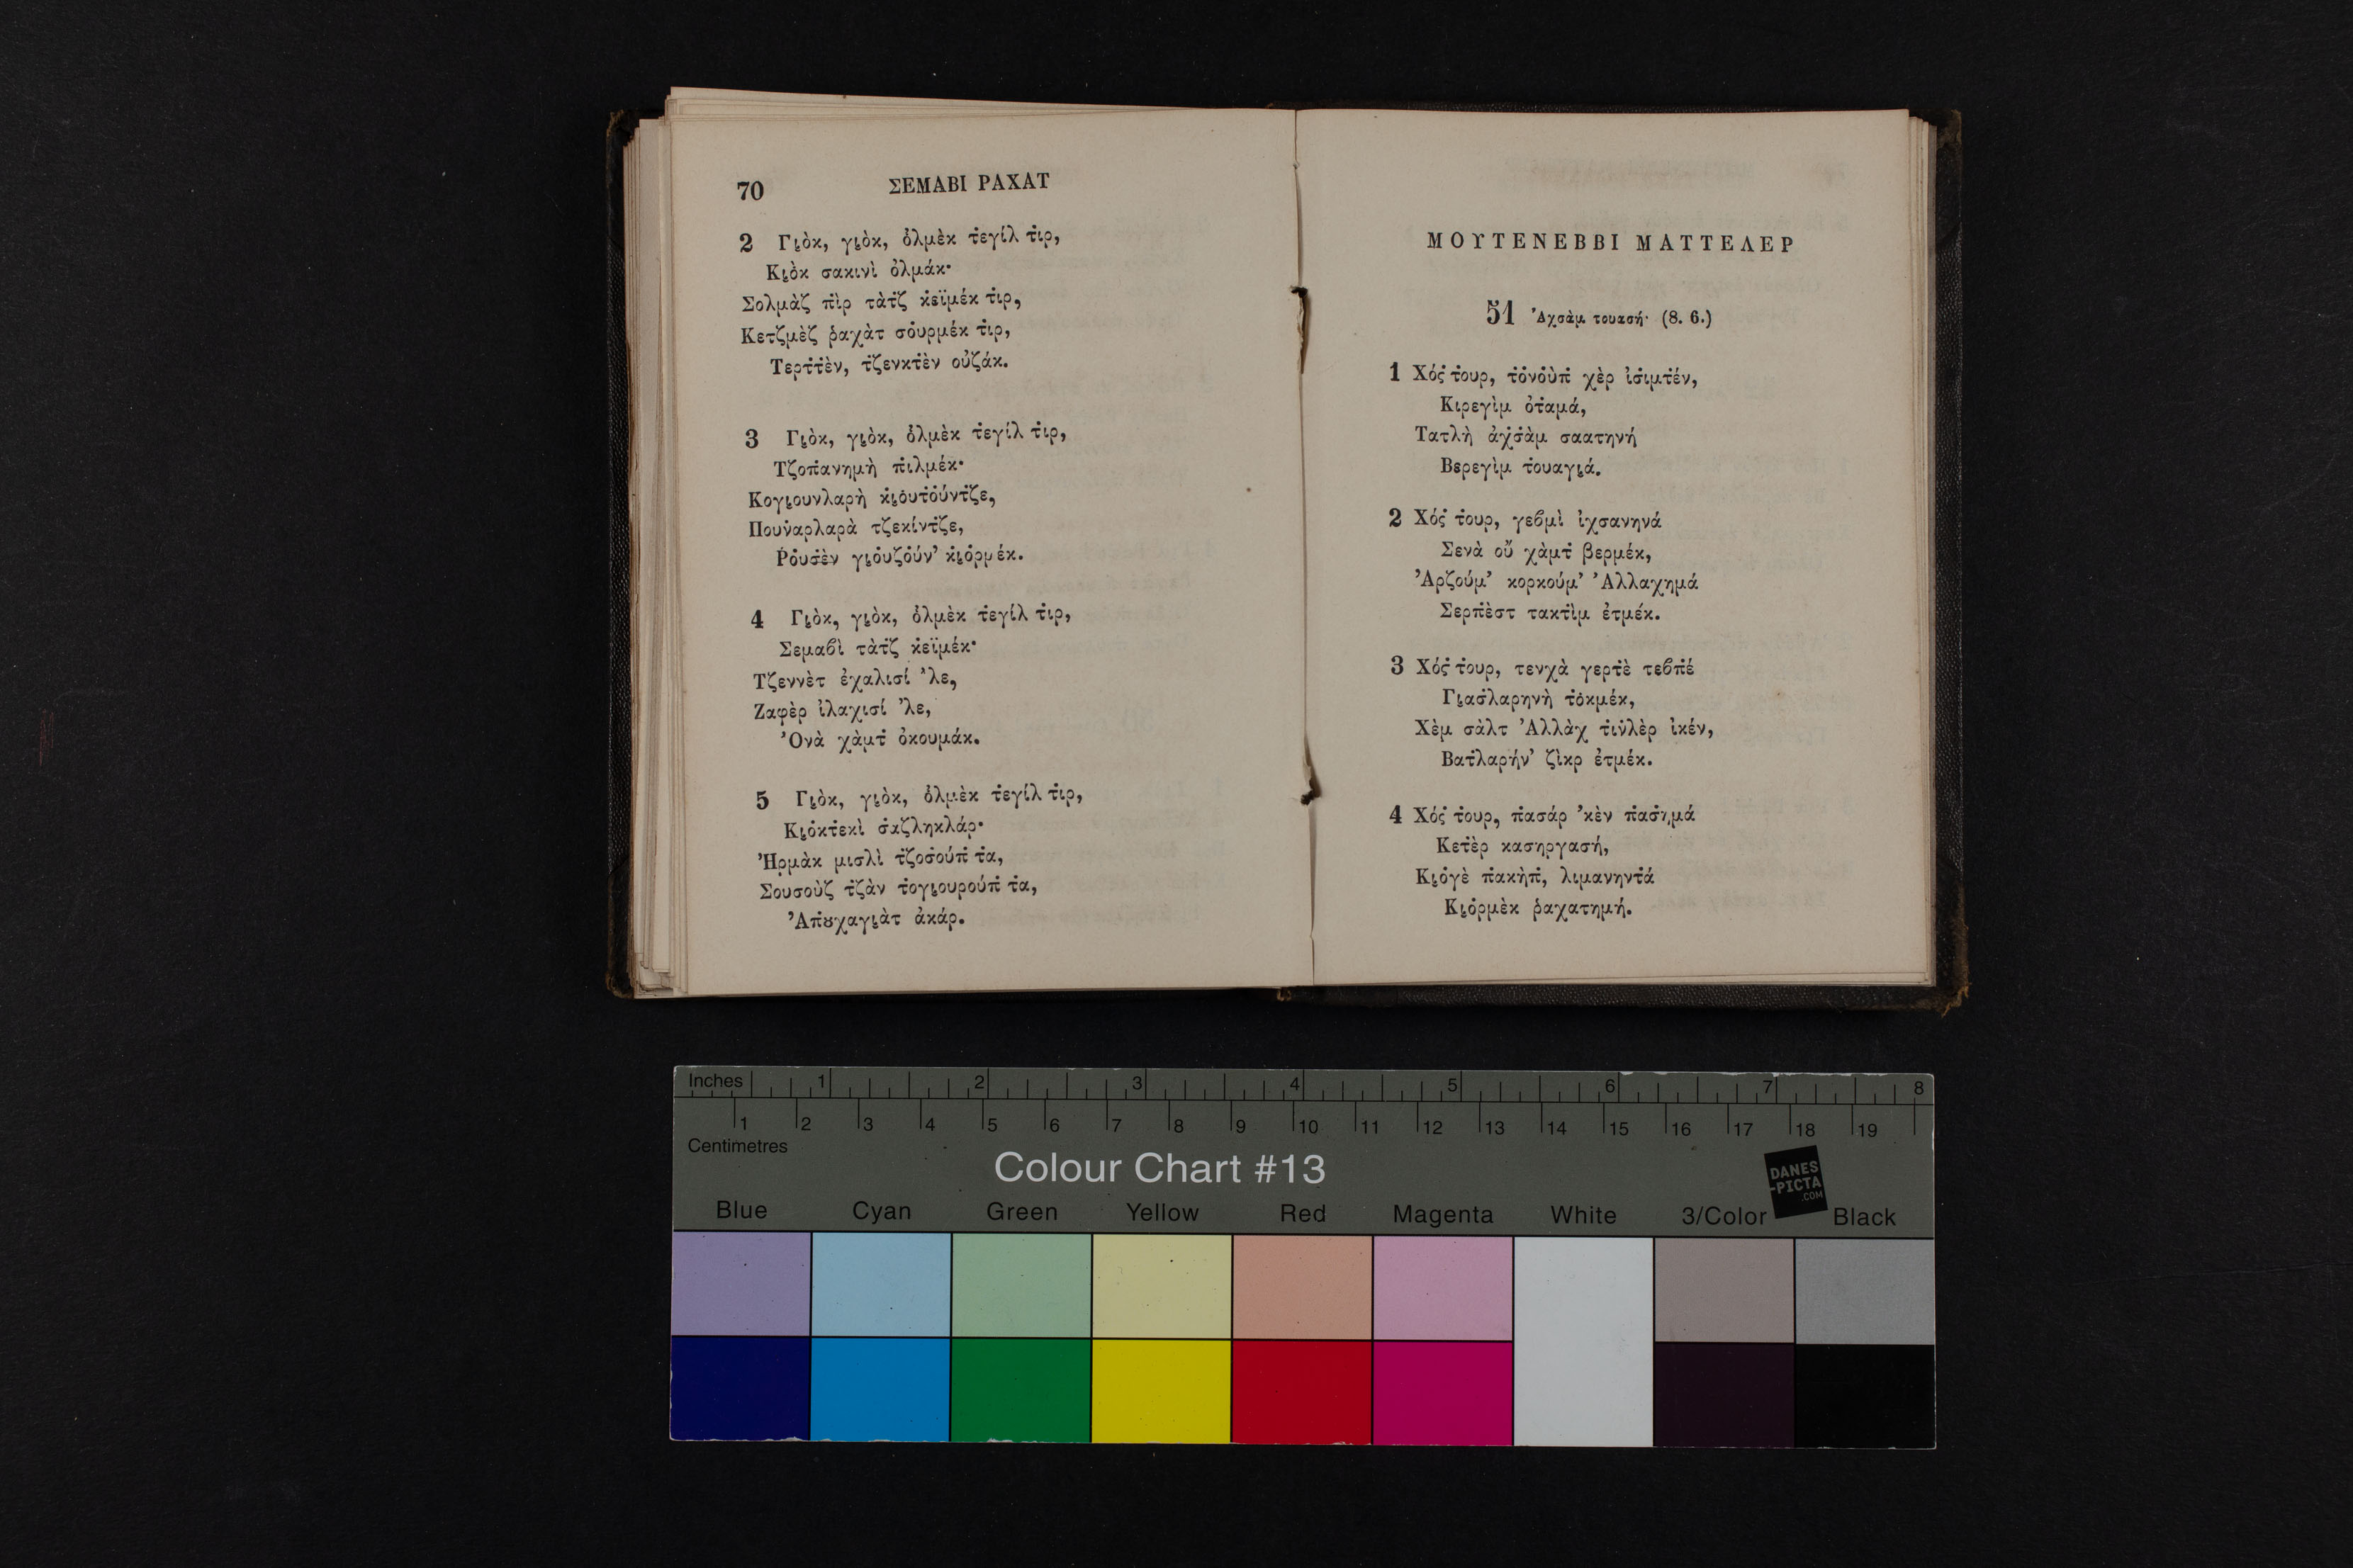 70 ΣΕΜΑΒΙ ΡΑΧΑΤ
2 Γι̮ὸκ, γι̮ὸκ, ὀλμὲκ τ̇εγίλ τ̇ιρ,
Κι̮ὸκ σακινὶ ὀλμάκ·
Σολμὰζ π̇ὶρ τὰτ̇ζ κ̇εϊμέκ τ̇ιρ,
Κετζμὲζ ῥαχὰτ σο̇υρμέκ τ̇ιρ,
Τερτ̇τ̇ὲν, τ̇ζενκτ̇ὲν οὐζάκ.
3 Γι̮ὸκ, γι̮ὸκ, ὀλμὲκ τ̇εγίλ τ̇ιρ,
Τζοπ̇ανημὴ π̇ιλμέκ·
Κογι̮ουνλαρὴ κ̇ι̮ο̇υτο̇ύντ̇ζε,
Πουν̇αρλαρὰ τζεκίντ̇ζε,
Ῥο̇υσ̇ὲν γι̮ο̇υζο̇ύν’ κ̇ι̮ο̇ρμέκ.
4 Γι̮ὸκ, γι̮ὸκ, ὀλμὲκ τ̇εγίλ τ̇ιρ,
Σεμαϐὶ τὰτ̇ζ κ̇εϊμέκ·
Τζεννὲτ ἐχαλισί ’λε,
Ζαφὲρ ἰλαχισί ’λε,
Ὀνὰ χὰμτ̇ ὀκουμάκ.
5 Γι̮ὸκ, γι̮ὸκ, ὀλμὲκ τ̇εγίλ τ̇ιρ,
Κι̮ο̇κτ̇εκὶ σ̇αζληκλάρ·
Ἠρμὰκ μισλὶ τ̇ζοσ̇ούπ̇ τ̇α,
Σουσοὺζ τ̇ζὰν τ̇ογι̮ουρούπ̇ τ̇α,
Ἀπ̇ȣχαγι̮ὰτ ἀκάρ.
ΜΟΥΤΕΝΕΒΒΙ ΜΑΤΤΕΛΕΡ
51 Ἀχσὰμ τουασή· (8. 6.)
1 Χόσ̇ τ̇ουρ, τ̇ο̇νο̇ὺπ̇ χὲρ ἰσ̇ιμτ̇έν,
Κιρεγὶμ ὀτ̇αμά,
Τατλὴ ἀχσ̇ὰμ σαατηνή
Βερεγὶμ τ̇ουαγι̮ά.
2 Χόσ̇ τ̇ουρ, γεϐμὶ ἰχσανηνά
Σενὰ οὒ χὰμτ̇ βερμέκ,
Ἀρζούμ’ κορκούμ’ Ἀλλαχημά
Σερπ̇ὲστ τακτ̇ὶμ ἐτμέκ.
3 Χόσ̇ τ̇ουρ, τενχὰ γερτ̇ὲ τεϐπ̇έ
Γι̮ασ̇λαρηνὴ τ̇ο̇κμέκ,
Χὲμ σὰλτ Ἀλλὰχ τ̇ιν̇λὲρ ἰκέν,
Βατ̇λαρήν’ ζὶκρ ἐτμέκ.
4 Χόσ̇ τ̇ουρ, π̇ασάρ ’κὲν π̇ασ̇ημά
Κετ̇ὲρ κασηργασή,
Κι̮ο̇γὲ π̇ακὴπ̇, λιμανηντ̇ά
Κι̮ο̇ρμὲκ ῥαχατημή.
Inches 1 2 3 4 5 6 7 8
1 2 3 4 5 6 7 8 9 10 11 12 13 14 15 16 17 18 19
Centimetres
Colour Chart #13
DANES
-PICTA
.COM
Blue Cyan Green Yellow Red Magenta White 3/Color Black